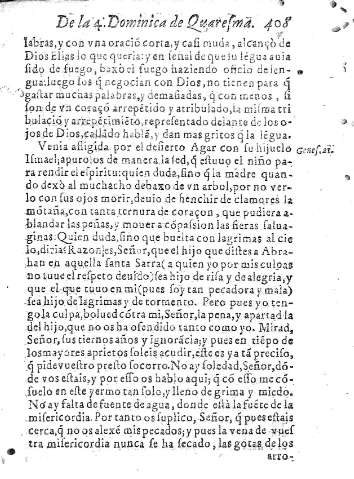 De la 4. Dominica de Quaresma. 408
labras, y con vna oració corta, y casi muda, alcançò de
Dios Elias lo que queria: y en señal de que su légua auia
sido de fuego, baxó el fuego haziendo oficio de len-
gua: luego los q̃ negocian con Dios, no tienen para q̃
gastar muchas palabras, y demasiadas, q̃ con menos, si
son de vn coraçõ arrepẽtido y atribulado, la misma tri
bulació y arrepẽtimiẽto, representado delante de los o-
jos de Dios, callãdo hablã, y dan mas gritos q̃ la légua.
Venia afligida por el desierto Agar con su hijuelo
Ismael; apurolos de manera la sed, q̃ estuuo el niño pa-
ra rendir el espiritu: quien duda, sino q̃ la madre quan-
do dexò al muchacho debaxo de vn arbol, por no ver-
lo con sus ojos morir, deuio de henchir de clamores la
mõtaña, con tanta ternura de coraçon, que pudiera a-
blandar las peñas, y mouer a cõpassion las fieras salua-
ginas. Quien duda, sino que buelta con lagrimas al cie
lo, dizias Razon es, Señor, que el hijo que distes a Abra-
han en aquella santa Sarra (a quien yo por mis culpas
no tuue el respeto deuido) sea hijo de risa y de alegria, y
que el que tuuo en mi (pues soy tan pecadora y mala)
sea hijo de lagrimas y de tormento. Pero pues yo ten-
go la culpa, bolued cõtra mi, Señor, la pena, y apartad la
del hijo, que no os ha ofendido tanto como yo. Mirad,
Señor, sus tiernos años y ignorãcia; y pues en tiẽpo de
los mayores aprietos soleis acudir, este es ya tã preciso,
q̃ pide vuestro presto socorro. No ay soledad, Señor, dõ-
de vos estais, y por esso os hablo aqui; q̃ cõ esso me có-
suelo en este yermo tan solo, y lleno de grima y miedo.
No ay falta de fuente de agua, donde està la fuẽte de la
misericordia. Por tanto os suplico, Señor, q̃ pues estais
cerca, q̃ no os alexé mis pecados; y pues la vena de vues
tra misericordia nunca se ha secado, las gotas de los
arro-
Genes. 21.